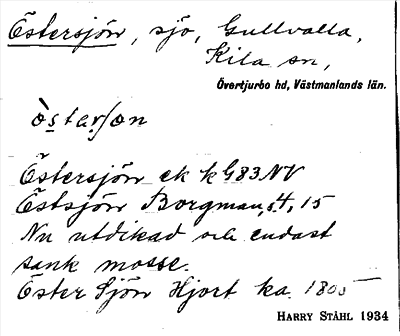 Östersjön, sjö, Gullvalla,
Kila sn,
Övertjurbo hd, Västmanlands län.
östarsön
Östersjön ek k G83 NV
Östsjön Borgman, s. 15
Nu utdikad och endast
sank mosse.
Öster Sjön Hjort ka. 1805
HARRY STÅHL 1934